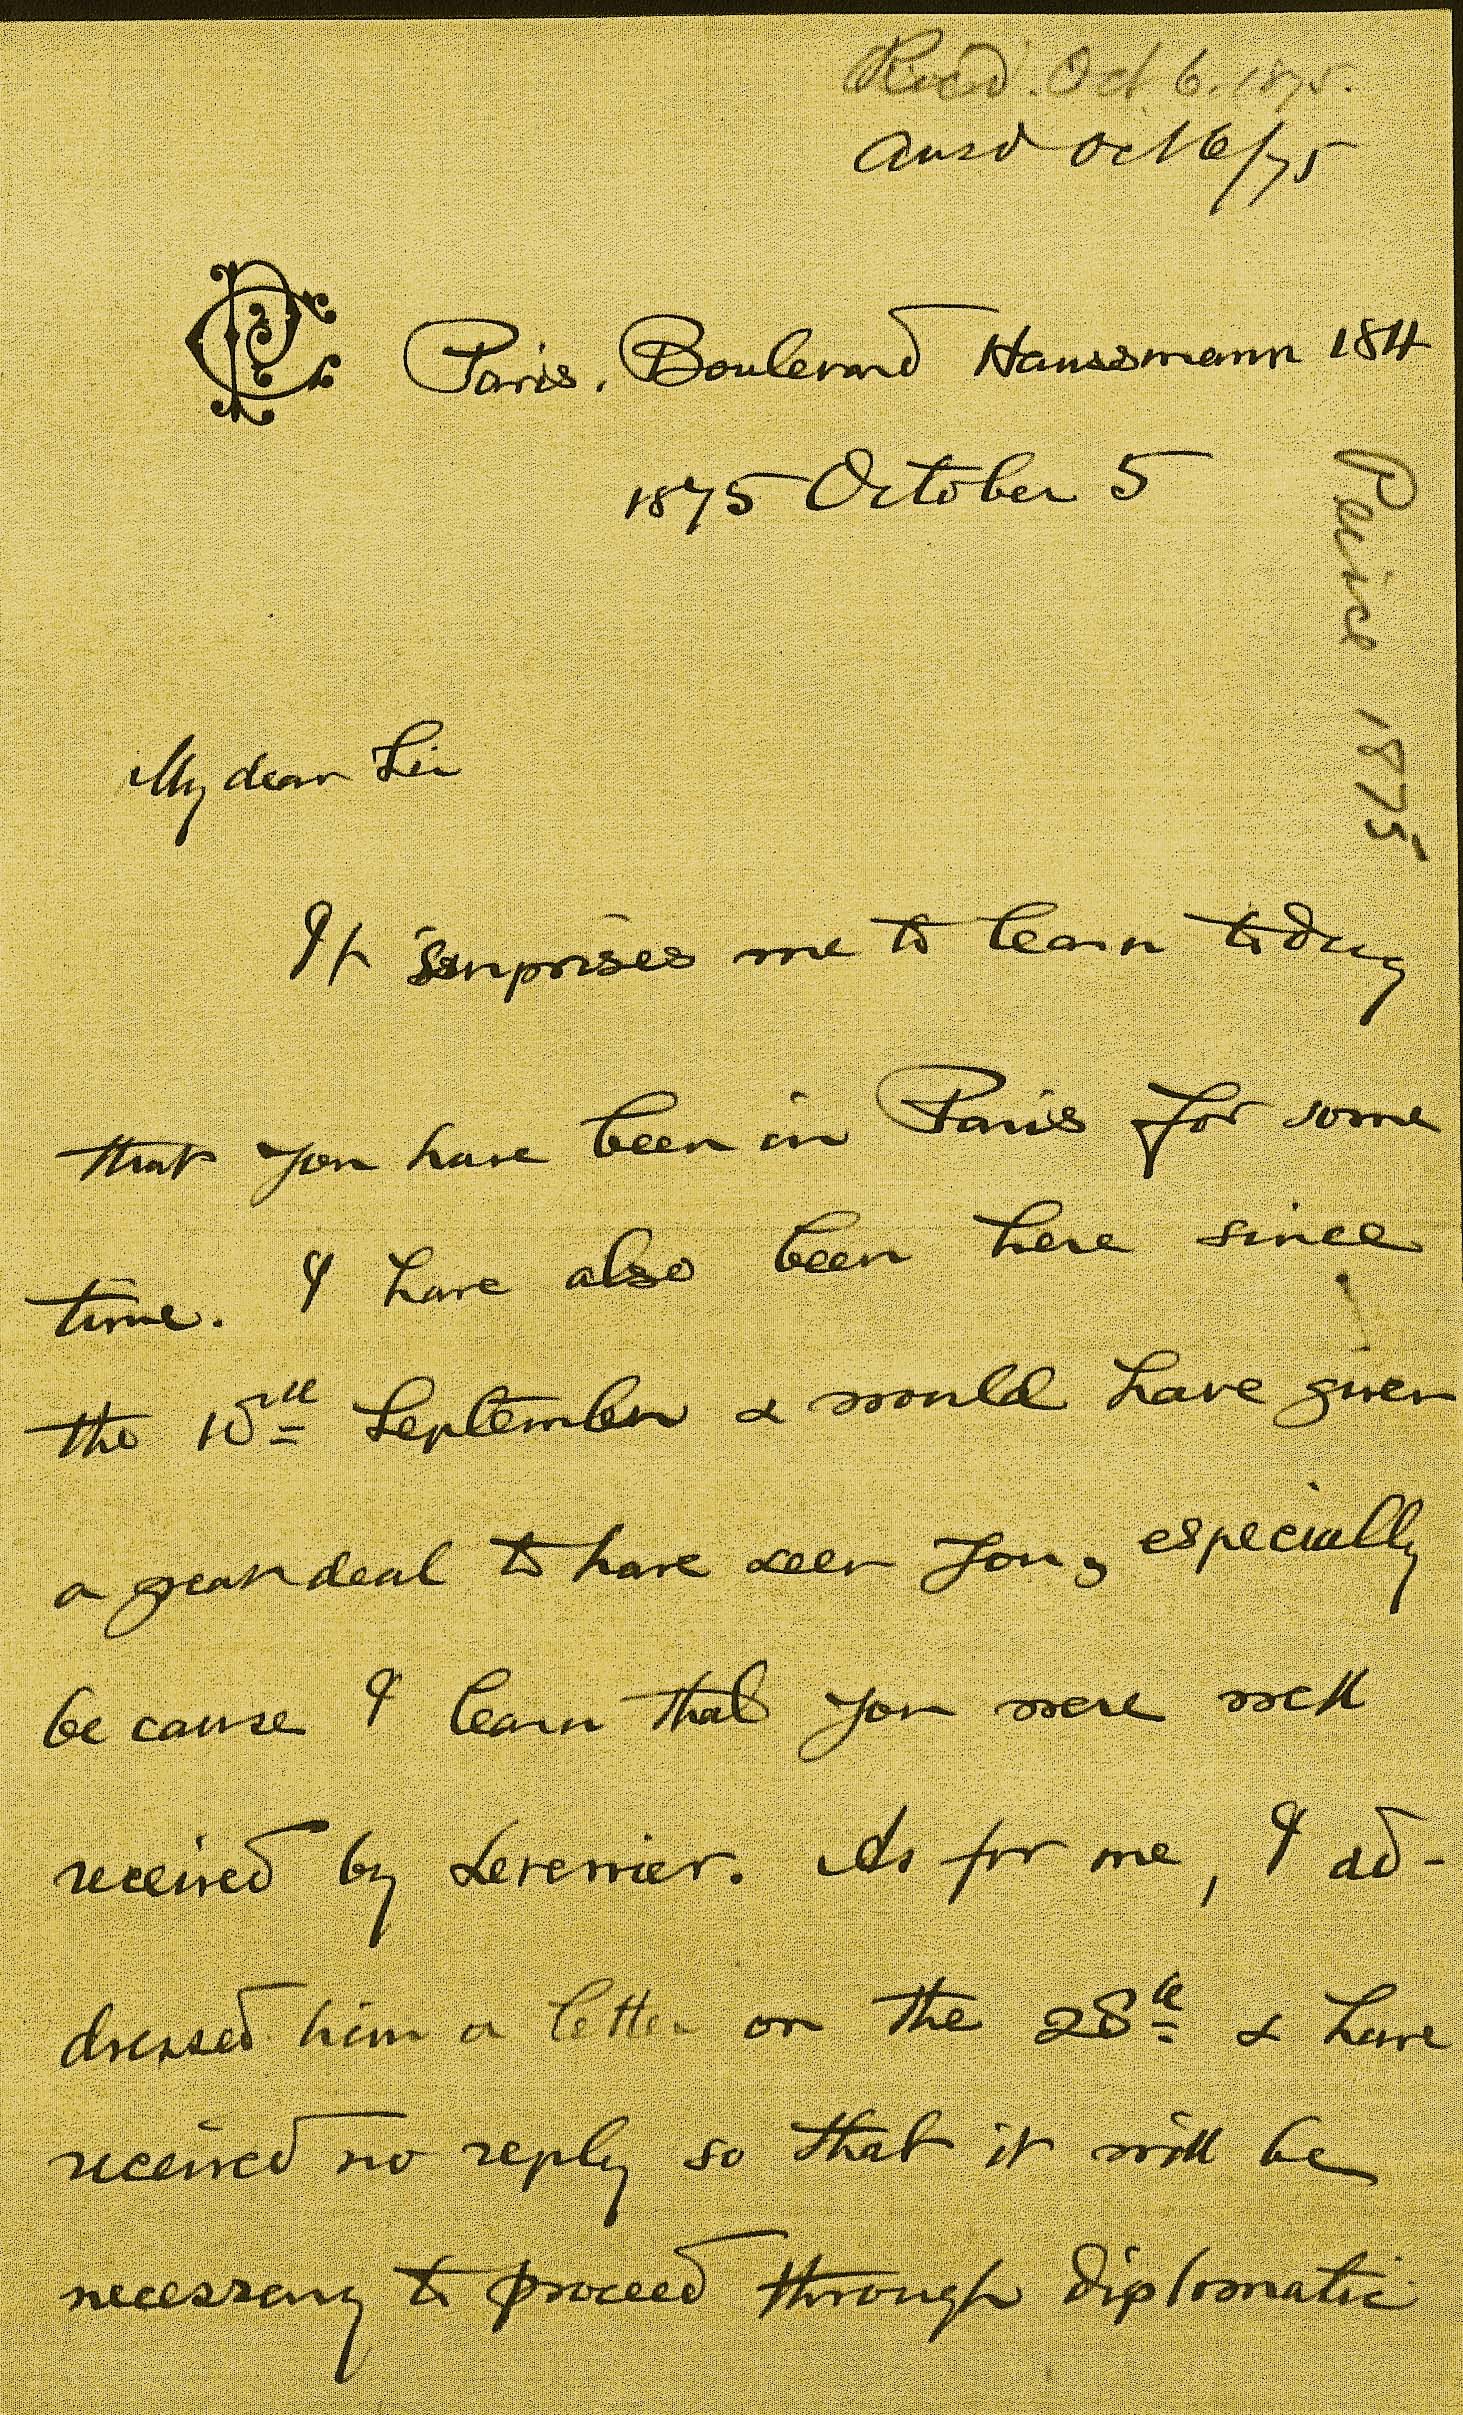 Recd. Oct 6. 1875.
Ansd Oct 6/75
Paris. Boulevard Haussmann 184
1875 October 5
Peirce 1875
My dear Sir
It surprises me to learn today
that you have been in Paris for some
time. I have also been here since
the 10th September & would have given
a great deal to have seen you, especially
because I learn that you were well
received by Leverrier. As for me, I ad-
dressed him a letter on the 28th & have
received no reply so that it will be
necessary to proceed through diplomatic